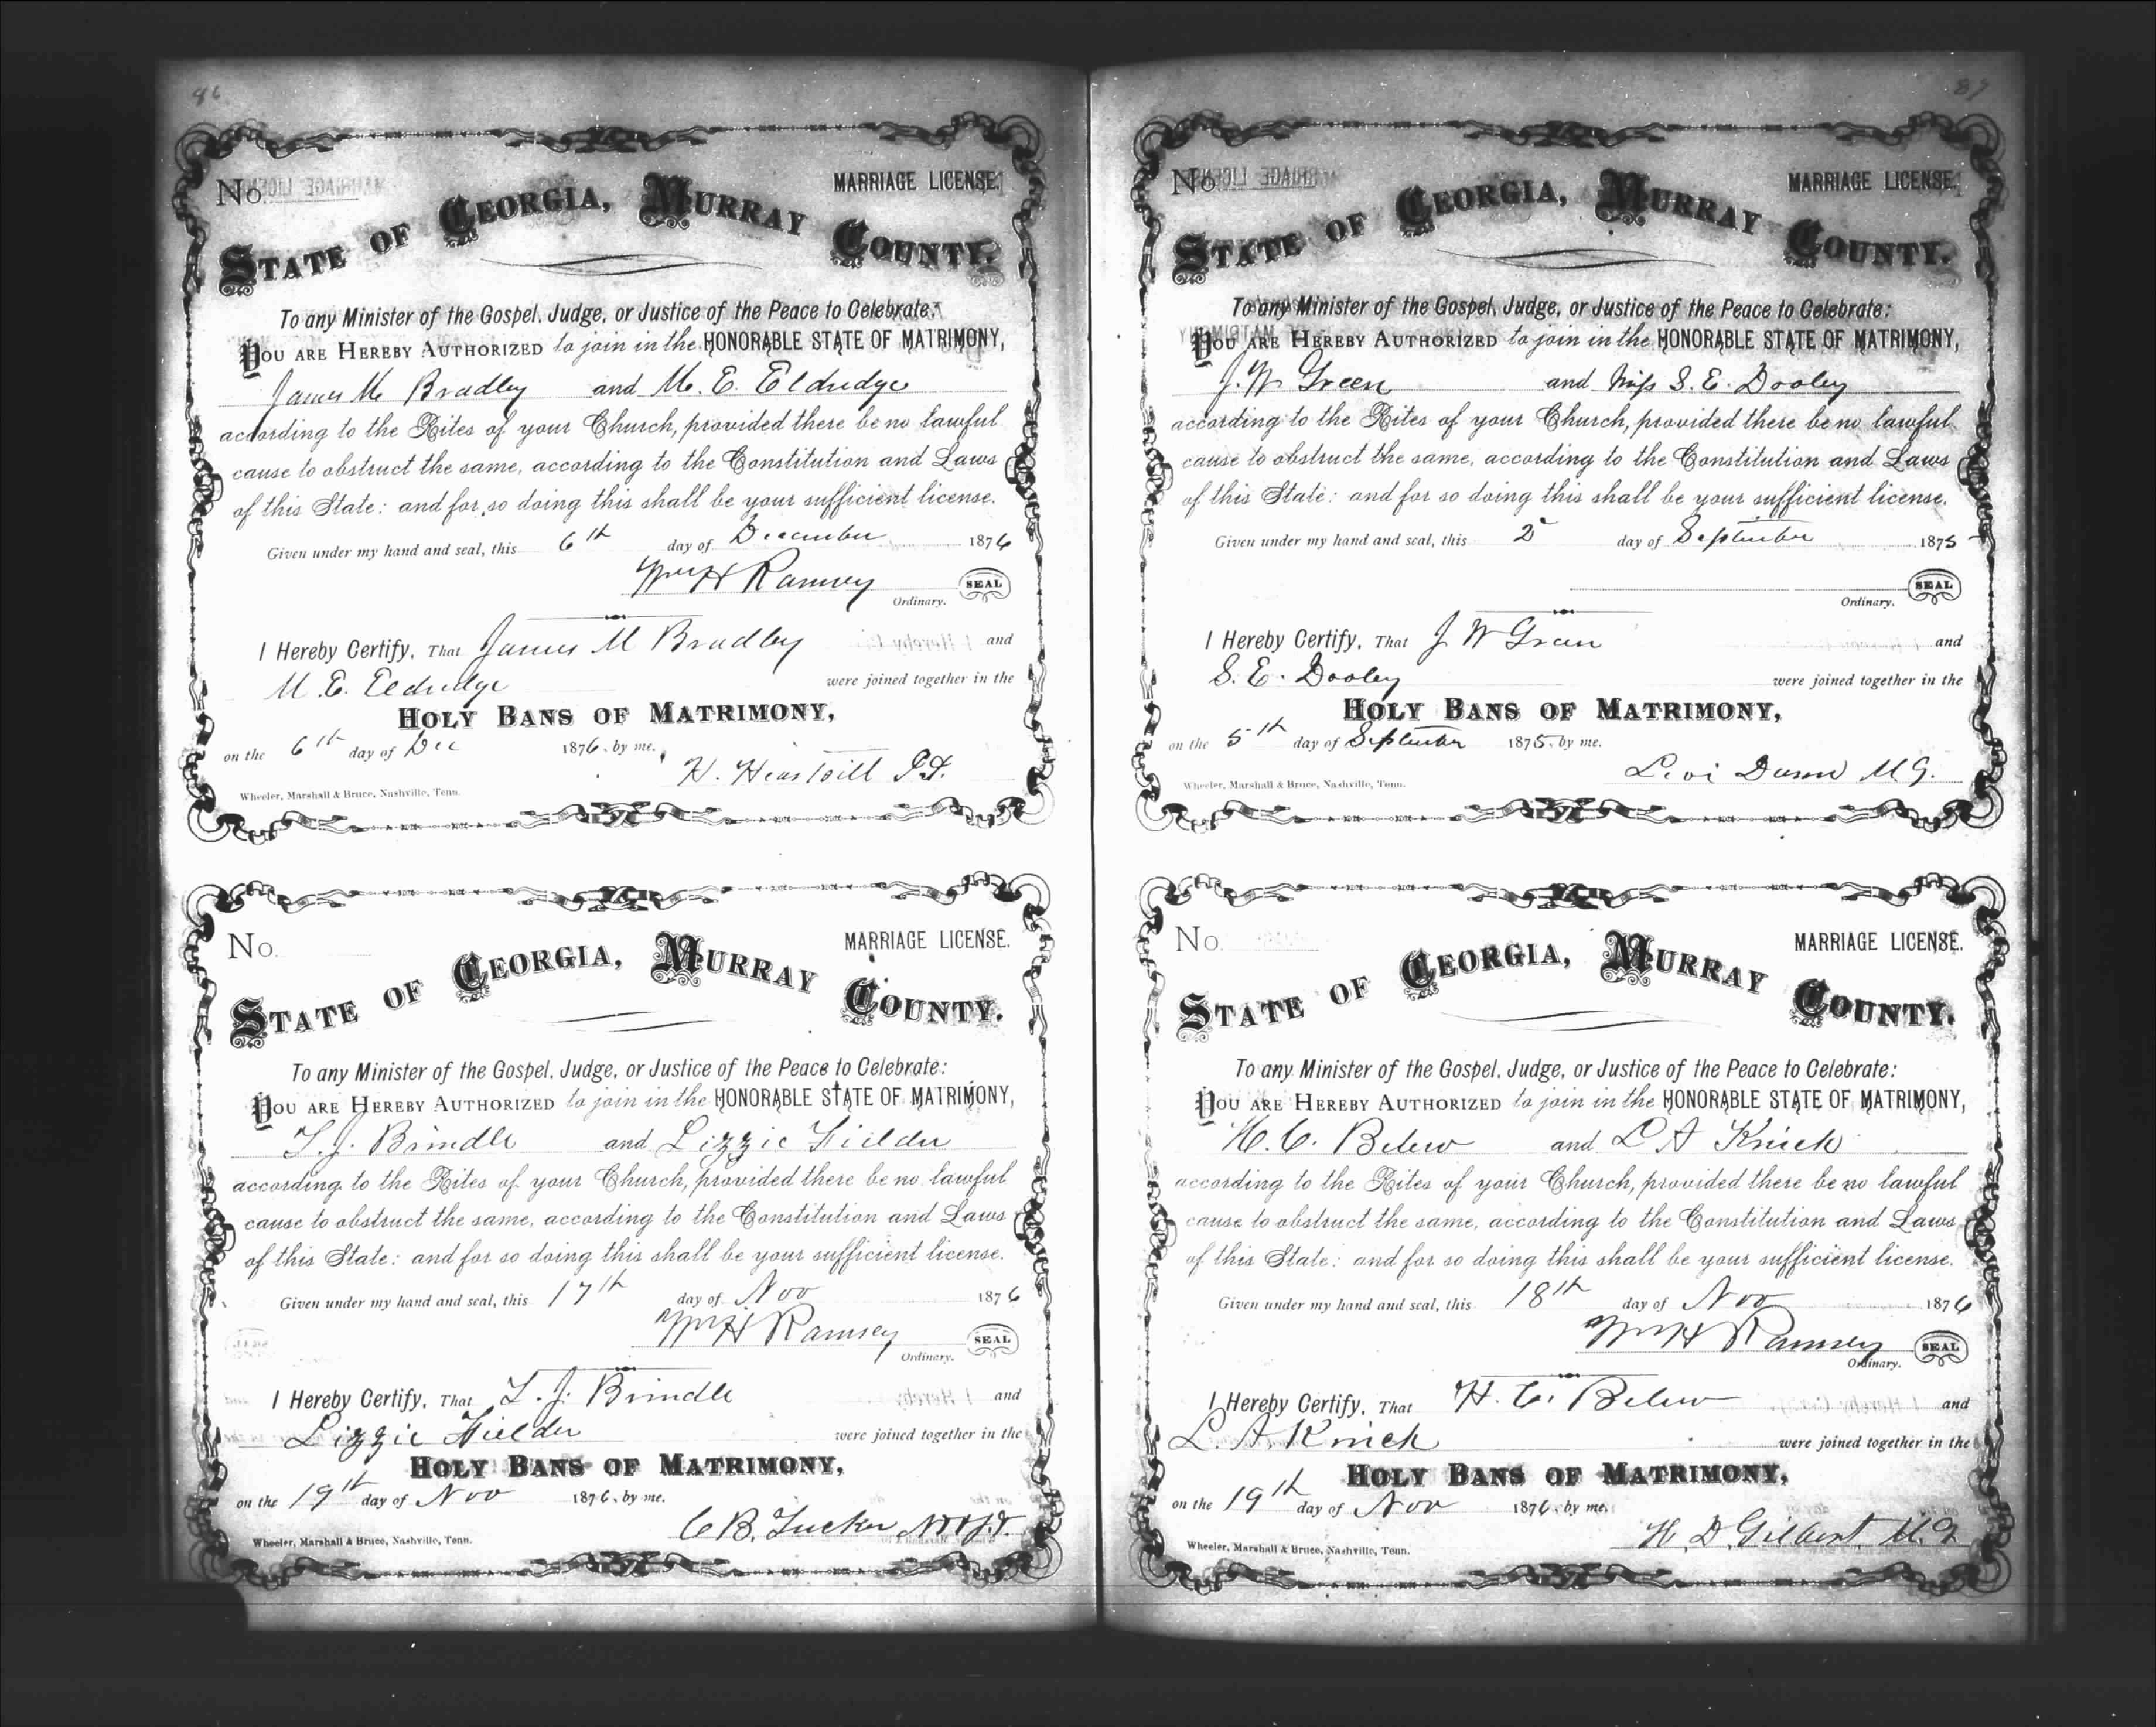 86
No. MARRIAGE LICENSE.
STATE OF GEORGIA, MURRAY COUNTY.
To any Minister of the Gospel, Judge, or Justice of the Peace to Celebrate:
YOU ARE HEREBY AUTHORIZED to join in the HONORABLE STATE OF MATRIMONY,
James M Bradley and M. E. Eldridge
according to the Rites of your Church, provided there be no lawful
cause to obstruct the same, according to the Constitution and Laws
of this State: and for so doing this shall be your sufficient license.
Given under my hand and seal, this 6th day of December 1876
Wm H Ramsey SEAL
Ordinary.
I Hereby Certify, That James M Bradley and
M. E. Eldridge were joined together in the
HOLY BANS OF MATRIMONY,
on the 6th day of Dec 1876, by me.
H.
Wheeler, Marshall & Bruce, Nashville, Tenn.
No. MARRIAGE LICENSE.
STATE OF GEORGIA, MURRAY COUNTY.
To any Minister of the Gospel, Judge, or Justice of the Peace to Celebrate:
YOU ARE HEREBY AUTHORIZED to join in the HONORABLE STATE OF MATRIMONY,
T. J. Brindle and Lizzie Fielder
according to the Rites of your Church, provided there be no lawful
cause to obstruct the same, according to the Constitution and Laws
of this State: and for so doing this shall be your sufficient license.
Given under my hand and seal, this 17th day of Nov 1876
Wm H Ramsey SEAL
Ordinary.
I Hereby Certify, That T. J. Brindle and
Lizzie Fielder were joined together in the
HOLY BANS OF MATRIMONY,
on the 19th day of Nov 1876, by me.
C B. Tucker
Wheeler, Marshall & Bruce, Nashville, Tenn.
87
No. MARRIAGE LICENSE.
STATE OF GEORGIA, MURRAY COUNTY.
To any Minister of the Gospel, Judge, or Justice of the Peace to Celebrate:
YOU ARE HEREBY AUTHORIZED to join in the HONORABLE STATE OF MATRIMONY,
J. W Green and Miss S. E. Dooley
according to the Rites of your Church, provided there be no lawful
cause to obstruct the same, according to the Constitution and Laws
of this State: and for so doing this shall be your sufficient license.
Given under my hand and seal, this 2 day of September 1875
SEAL
Ordinary.
I Hereby Certify, That J W Green and
S. E. Dooley were joined together in the
HOLY BANS OF MATRIMONY,
on the 5th day of September 1875, by me.
Levi Dunn M.G.
Wheeler, Marshall & Bruce, Nashville, Tenn.
No. MARRIAGE LICENSE.
STATE OF GEORGIA, MURRAY COUNTY.
To any Minister of the Gospel, Judge, or Justice of the Peace to Celebrate:
YOU ARE HEREBY AUTHORIZED to join in the HONORABLE STATE OF MATRIMONY,
H. C. Belew and L A Knick
according to the Rites of your Church, provided there be no lawful
cause to obstruct the same, according to the Constitution and Laws
of this State: and for so doing this shall be your sufficient license.
Given under my hand and seal, this 18th day of Nov 1876
Wm H Ramsey SEAL
Ordinary.
I Hereby Certify, That H. C. Belew and
L. A. Knick were joined together in the
HOLY BANS OF MATRIMONY,
on the 19th day of Nov 1876, by me.
H. D. Gilbert, M.G.
Wheeler, Marshall & Bruce, Nashville, Tenn.